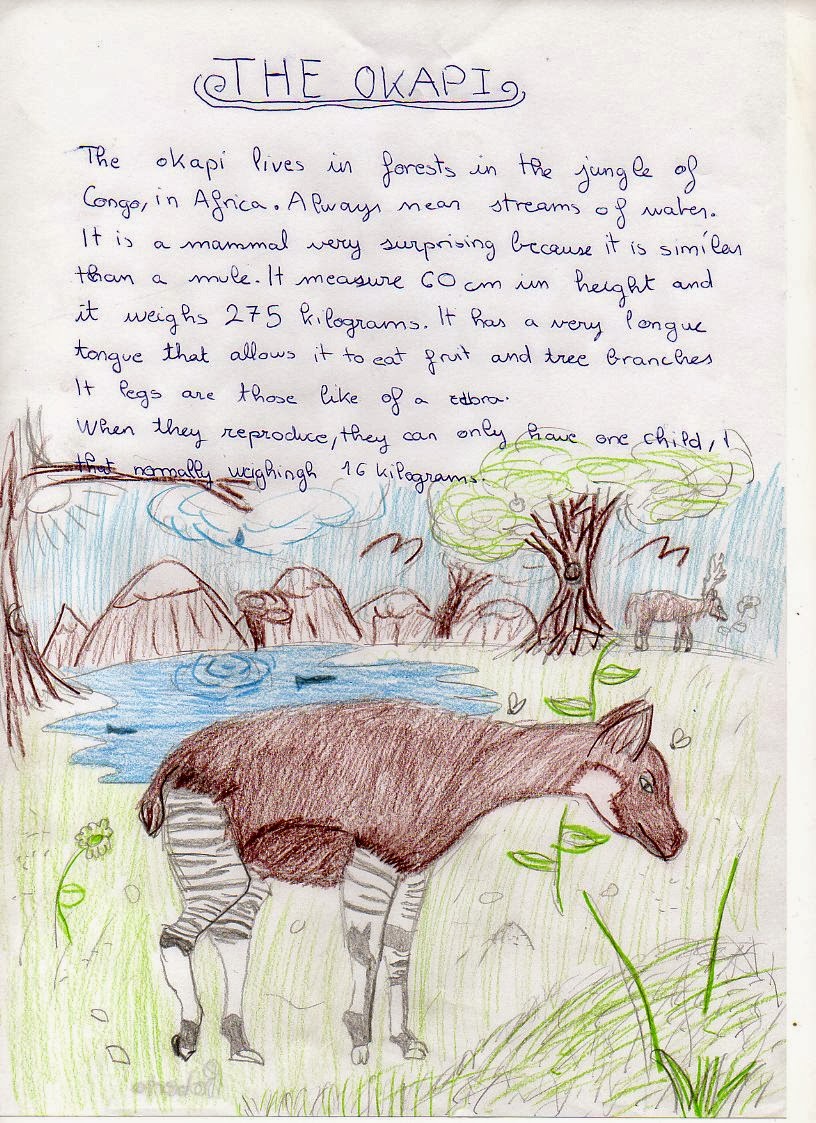 THE OKAPI
The okapi lives in forests in the jungle of
Congo, in Africa. Always near streams of water.
It is a mammal very surprising because it is similar
than a mule. It measure 60 cm in height and
it weighs 275 kilograms. It has a very longue
tongue that allows it to eat fruit and tree branches
It legs are those like of a zebra.
When they reproduce, they can only have one child,
that normally weighingh 16 kilograms.